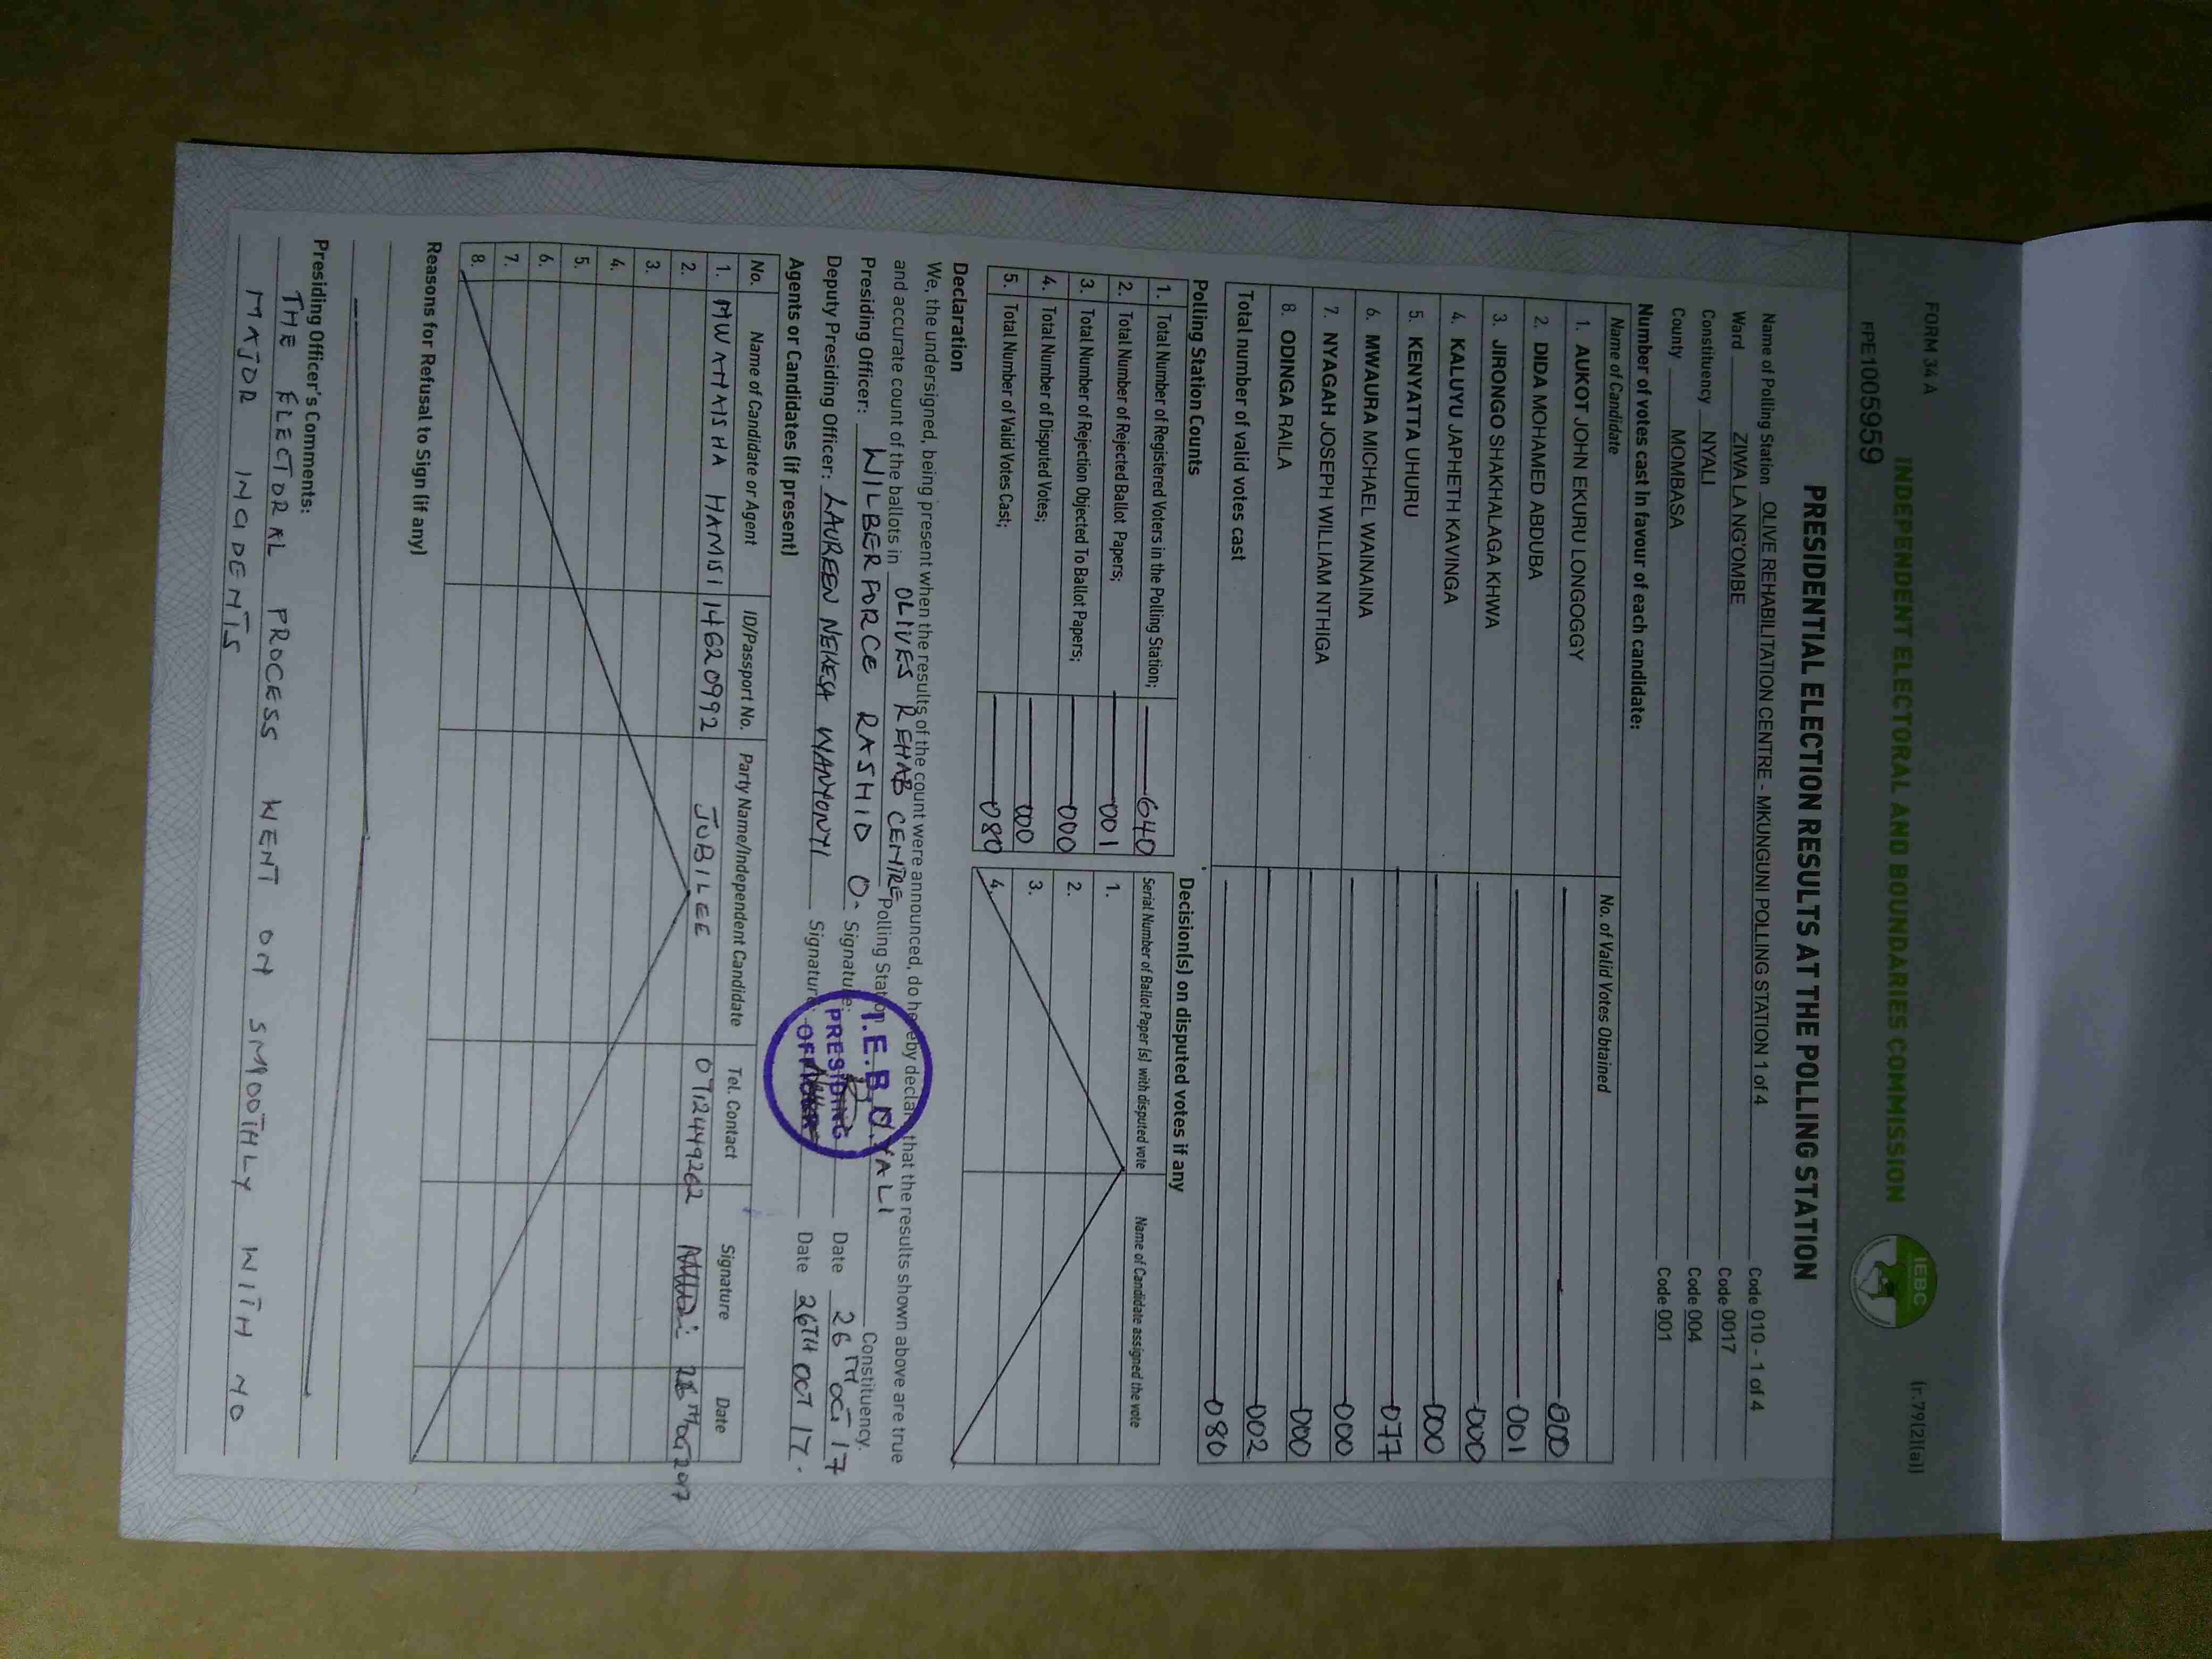 FORM 34 A
(r.79(2)(a))
INDEPENDENT ELECTORAL AND BOUNDARIES COMMISSION
IEBC
PPE1005959
PRESIDENTIAL ELECTION RESULTS AT THE POLLING STATION
Name of Polling Station OLIVE REHABILITATION CENTRE - MKUNGUNI POLLING STATION 1 of 4 Code 010 - 1 of 4
Ward ZIWA LA NG'OMBE Code 0017
Constituency NYALI Code 004
County MOMBASA Code 001
Number of votes cast in favour of each candidate:
Name of Candidate No. of Valid Votes Obtained
1. AUKOT JOHN EKURU LONGOGGY 000
2. DIDA MOHAMED ABDUBA 001
3. JIRONGO SHAKHALAGA KHWA 000
4. KALUYU JAPHETH KAVINGA 000
5. KENYATTA UHURU 077
6. MWAURA MICHAEL WAINAINA 000
7. NYAGAH JOSEPH WILLIAM NTHIGA 000
8. ODINGA RAILA 002
Total number of valid votes cast 080
Polling Station Counts
1. Total Number of Registered Voters in the Polling Station; 640
2. Total Number of Rejected Ballot Papers; 001
3. Total Number of Rejection Objected To Ballot Papers; 000
4. Total Number of Disputed Votes; 000
5. Total Number of Valid Votes Cast; 080
Decision(s) on disputed votes if any
Serial Number of Ballot Paper (s) with disputed vote Name of Candidate assigned the vote
1.
2.
3.
4.
Declaration
We, the undersigned, being present when the results of the count were announced, do hereby declare that the results shown above are true
and accurate count of the ballots in OLIVES REHAB CENTRE Polling Station NYALI Constituency.
Presiding Officer: WILBERFORCE RASHID O. Signature: Date 26TH OCT 17
Deputy Presiding Officer: LAUREEN NEKESA WANYONYI Signature: Date 26TH OCT 17.
I.E.B.C.
PRESIDING
OFFICER
Agents or Candidates (if present)
No. Name of Candidate or Agent ID/Passport No. Party Name/Independent Candidate Tel. Contact Signature Date
1. MWANAISHA HAMISI 14620992 JUBILEE 0712449262 26TH OCT 2017
2.
3.
4.
5.
6.
7.
8.
Reasons for Refusal to Sign (if any)
Presiding Officer's Comments:
THE ELECTORAL PROCESS WENT ON SMOOTHLY WITH NO
MAJOR INCIDENTS